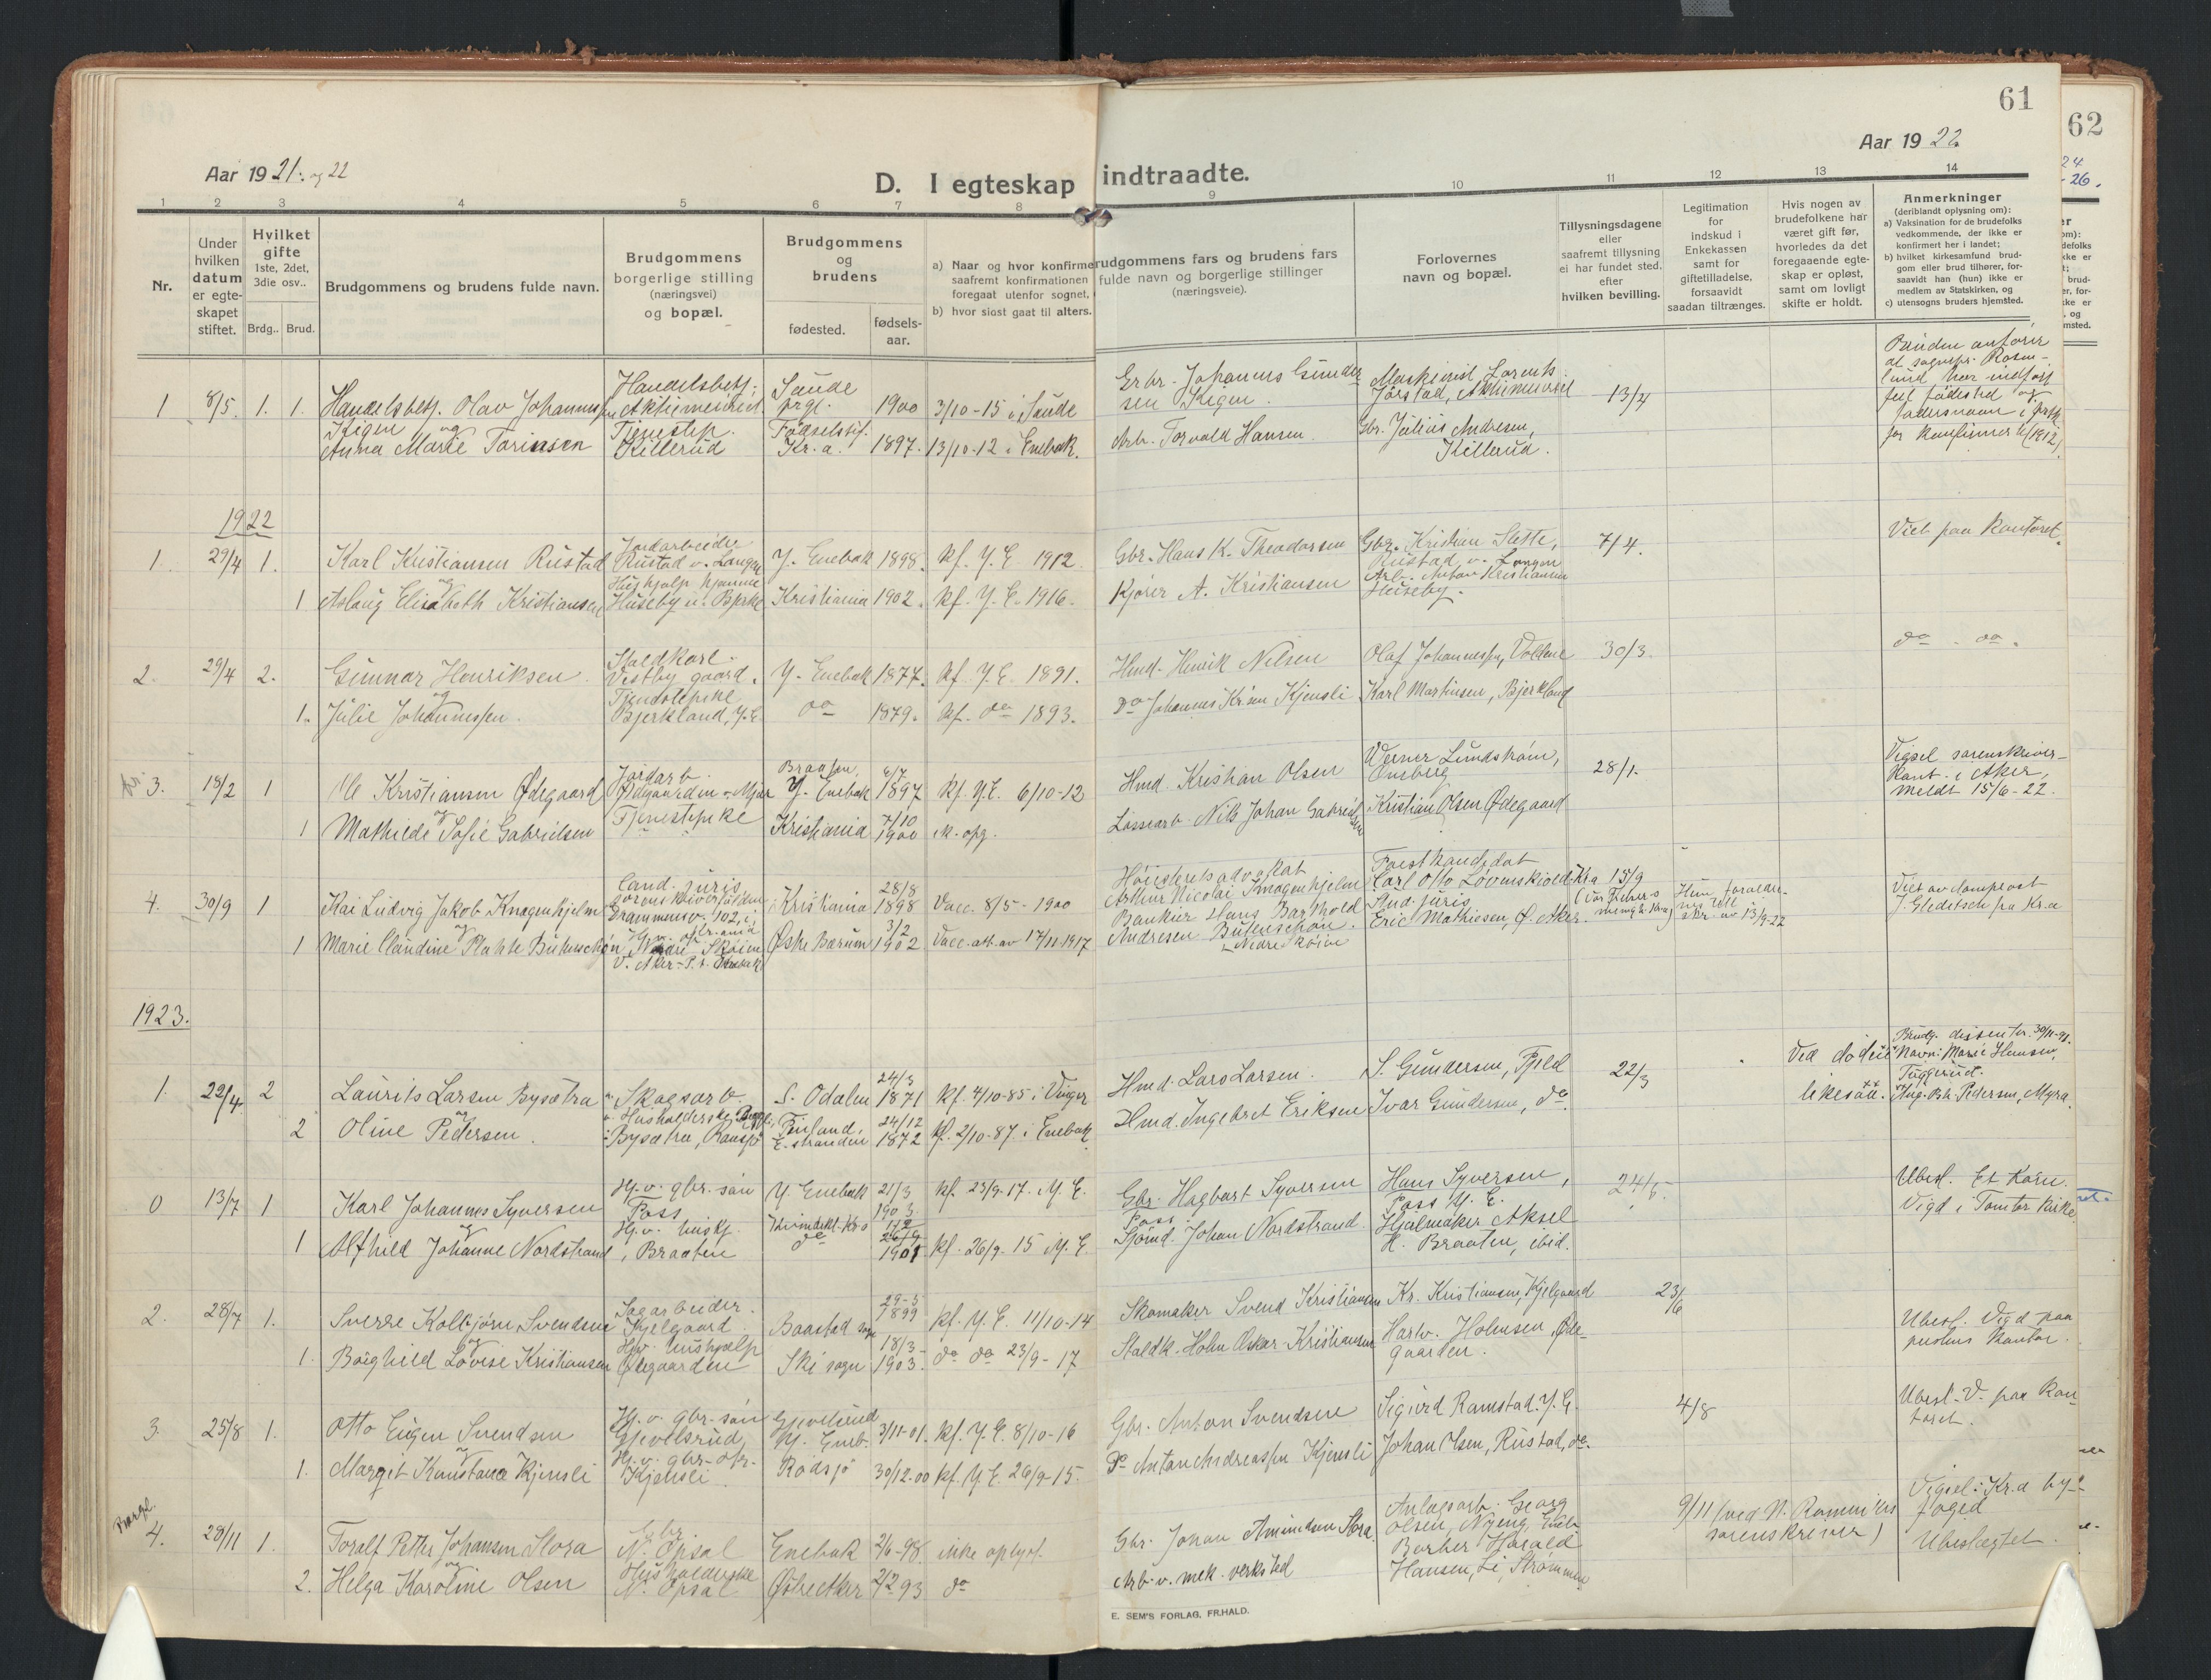 61
62
Aar 1921. og 22
D. I egteskap indtraadte.
Aar 1922.
1 2 3 4 5 6 7 8 9 10 11 12 13 14
Nr.
Under
hvilken
datum
er egte-
skapet
stiftet.
Hvilket
gifte
1ste, 2det,
3die osv..
Brdg.. Brud.
Brudgommens og brudens fulde navn.
Brudgommens
borgerlige stilling
(næringsvei)
og bopæl.
Brudgommens
og
brudens
fødested.
fødsels-
aar.
a) Naar og hvor konfirme
saafremt konfirmationen
foregaat utenfor sognet,
b) hvor sidst gaat til alters.
rudgommens fars og brudens fars
fulde navn og borgerlige stillinger
(næringsveie).
Forlovernes
navn og bopæl.
Tillysningsdagene
eller
saafremt tillysning
ei har fundet sted,
efter
hvilken bevilling.
Legitimation
for
Indskud i
Enkekassen
samt for
giftetilladelse,
forsaavidt
saadan tiltrænges.
Hvis nogen av
brudefolkene har
været gift før,
hvorledes da det
foregaaende egte-
skap er opløst,
samt om lovligt
skifte er holdt.
Anmerkninger
(deriblandt oplysning om):
a) Vaksination for de brudefolks
vedkommende, der ikke er
konfirmert her i landet;
b) hvilket kirkesamfund brud-
gom eller brud tilhører, for-
saavidt han (hun) ikke er
medlem av Statskirken, og
c) utensogns bruders hjemsted.
1 8/5. 1. 1. Handelsbetj. Olav Johannessen
Kigen og
Anna Marie Torinsen
Handelsbetj.
Tjenestep.
Killerud
Saude
prgj.
Fødselsstif.
Kr.a.
1900
1897.
3/10-15 i Saude
13/10-12 i Enebak.
Gbr. Johannes Gunder
sen Kigen.
Arb. Torvald Hansen.
Maskinist Lorents
Gbr. Julius Andresen,
Killerud.
13/4
Bruden anfører
at sognepr. Rosen-
lund har indført
feil fødested og
farsnavn i
for konfirmerte (1912)
1922
1. 29/4 1. Karl Kristiansen Rustad
og
1 Aslaug Elisabeth Kristiansen
Jordarbeider
Rustad v. Langen
Hushjælp hjemme
Huseby v. Bjerke
Y. Enebak 1898. kf. Y.E. 1912
Kristiania 1902. kf. Y.E. 1916.
Gbr. Hans K. Theodorsen
Kjører A. Kristiansen
Gbr. Kristian Slette,
Rustad v. Langen
Arb. Anton Kristiansen
Huseby.
7/4.
Viet paa kontoret.
2. 29/4 2. Gunnar Henriksen
og
1. Julie Johannessen.
Staldkarl.
Vestby gaard.
Tjenestepike
Bjerkland, Y.E.
Y. Enebak 1877. kf. Y.E. 1891.
do 1879. kf. do 1893.
Hmd. Henrik Nilsen
do Johannes Kr.sen Kjensli
Olaf Johannessen, Voldene
Karl Martinsen, Bjerkland
30/3.
do. do.
3. 18/2 1 Ole Kristiansen Ødegaard
og
1 Mathilde Sofie Gabrielsen
Jordarb.
Ødegaarden v. Mjær
Tjenestepike
Braaten
Y. Enebak
Kristiania
6/7
1897
7/10
1900
kf. Y.E. 6/10-12
m. opg.
Hmd. Kristian Olsen
Løssearb. Nils Johan Gabrielsen
Werner Lundstrøm,
Kristian Olsen Ødegaard
28/1.
Vigsel sorenskriver-
kont. i Aker,
meldt 15/6-22.
4. 30/9 1 Kai Ludvig Jakob Knagenhjelm
og
1 Marie Claudine Plahte Butenschøn
Cand. juris
Sorenskriverfuldm.
Drammensv. 102,
Nedre Skøien
V. Aker - P.t. Enebak
Kristiania
Østre Bærum
28/8
1898
3/2
1902
Vacc. 8/5-1900
Vacc. att. av 17/11-1917
Høiesteretsadvokat
Arthur Nicolai Knagenhjelm
Bankier Hans Barthold
Andresen Butenschøn.
Nedre Skøien
Forstkandidat
Carl Otto Løvenskiold
Stud. juris
Eric Mathiesen, Ø. Aker.
Kra 15/9
Hun foreldre-
skr. av 13/9-22
Viet av domprost
J. Gleditsch fra Kr.a
1923.
1. 22/4 2 Laurits Larsen Bysætra
og
2 Oline Pedersen.
Skogsarb.
Husholderske
Bysætra,
S. Odalen
Finland,
E. stranden
24/3
1871
24/12
1872
kf. 4/10-85 i Vinger
kf. 2/10-87. i Enebak
Hmd. Lars Larsen.
Hmd. Ingebret Eriksen
S. Gundersen, Fjeld
Ivar Gundersen, do.
22/3
Ved døden
likesaa.
Brudg. dissenter 30/11-91.
Navn: Marie Hansen,
Tuggerud.
Aug. Bh. Pedersen, Myra.
0 13/7 1 Karl Johannes Syversen
og
1 Alfhild Johanne Nordstrand
Hj.v. gbr. søn
Poss
Hj.v. huskj.
Braaten
Y. Enebak
do
21/3
1903
26/9
1901
kf. 23/9-17. Y.E.
kf. 26/9-15 Y.E.
Gbr. Hagbart Syversen
Poss.
Sjømd. Johan Nordstrand.
Hans Syversen,
Poss Y.E.
Hjulmaker Aksel
H. Braaten, ibid.
24/6.
Ubesl. Et Korn.
Vigd i Tomter kirke.
2. 28/7 1. Sverre Kolbjørn Svendsen
og
1. Borghild Lovise Kristiansen
Sagarbeider.
Kjelgaard.
Hjv. hushjælp
Ødegaarden
Baastad sogn
Ski sogn
29-5
1899
18/3-
1903.
kf. Y.E. 11/10-14
do do 23/9-17
Skomaker Svend Kristiansen
Staldk. Holm Oskar Kristiansen
Kr. Kristiansen, Kjelgaard
Harw. Holmsen, Øde-
gaarden.
23/6
Ubesl. Vigd paa
prestens kontor.
3. 25/8 1. Otto Eugen Svendsen
og
1. Margit Konstance Kjensli
Hj.v. gbr. søn
Gjevelsrud,
Hj.v. gbr. dtr.
Kjensli
Gjevelsrud
Y. Eneb.
Rødsjø
3/11-01.
30/12.00
kf. Y.E. 8/10-16
kf. Y.E. 26/9-15.
Gbr. Anton Svendsen
Do Anton Andreassen Kjensli
Sigurd Ramstad. Y.E.
Johan Olsen, Rustad, do.
4/8
Ubesl. V. paa kon-
toret.
Borgl.
4. 28/11 1. Toralf Petter Johansen Stora
og
2. Helga Karoline Olsen
Gbr.
N. Opsal
Husholderske
N. Opsal
Enebak
Østre Aker
2/6-98
2/2 93
ikke oplyst.
do
Gbr. Johan Amundsen Stora.
Arb. v. mek. verksted
Anlægsarb. Georg
Olsen, Nyeng, Eneb.
Barber Harald
Hansen, Li, Strømmen
9/11 (ved N. Romerikes
sorenskriver)
Vigsel: Kr.a by-
foged
Ubeslægtet.
E. SEM'S FORLAG, FR.HALD.